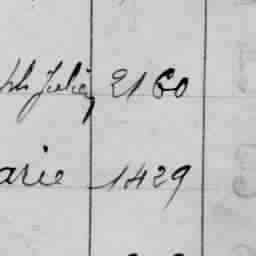 Julie 2160
arie 1429